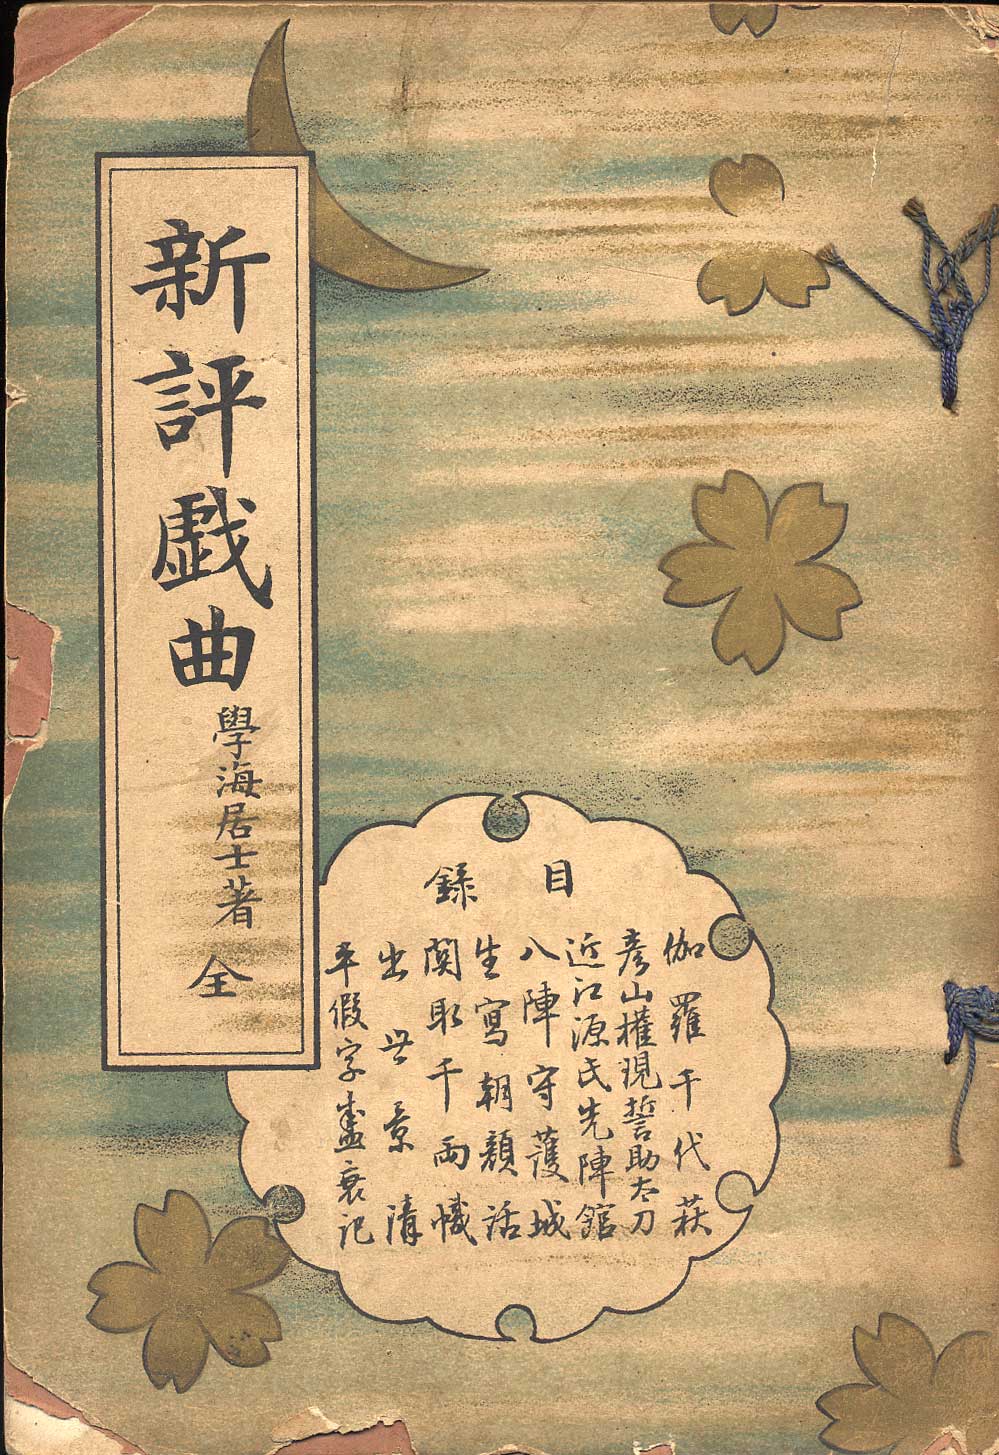 新評戯曲
學海居士著
全
目録
伽羅千代萩
彦山權現誓助太刀
近江源氏先陣館
八陣守護城
生寫朝顔話
関取千両幟
出世景清
平假字盛衰記